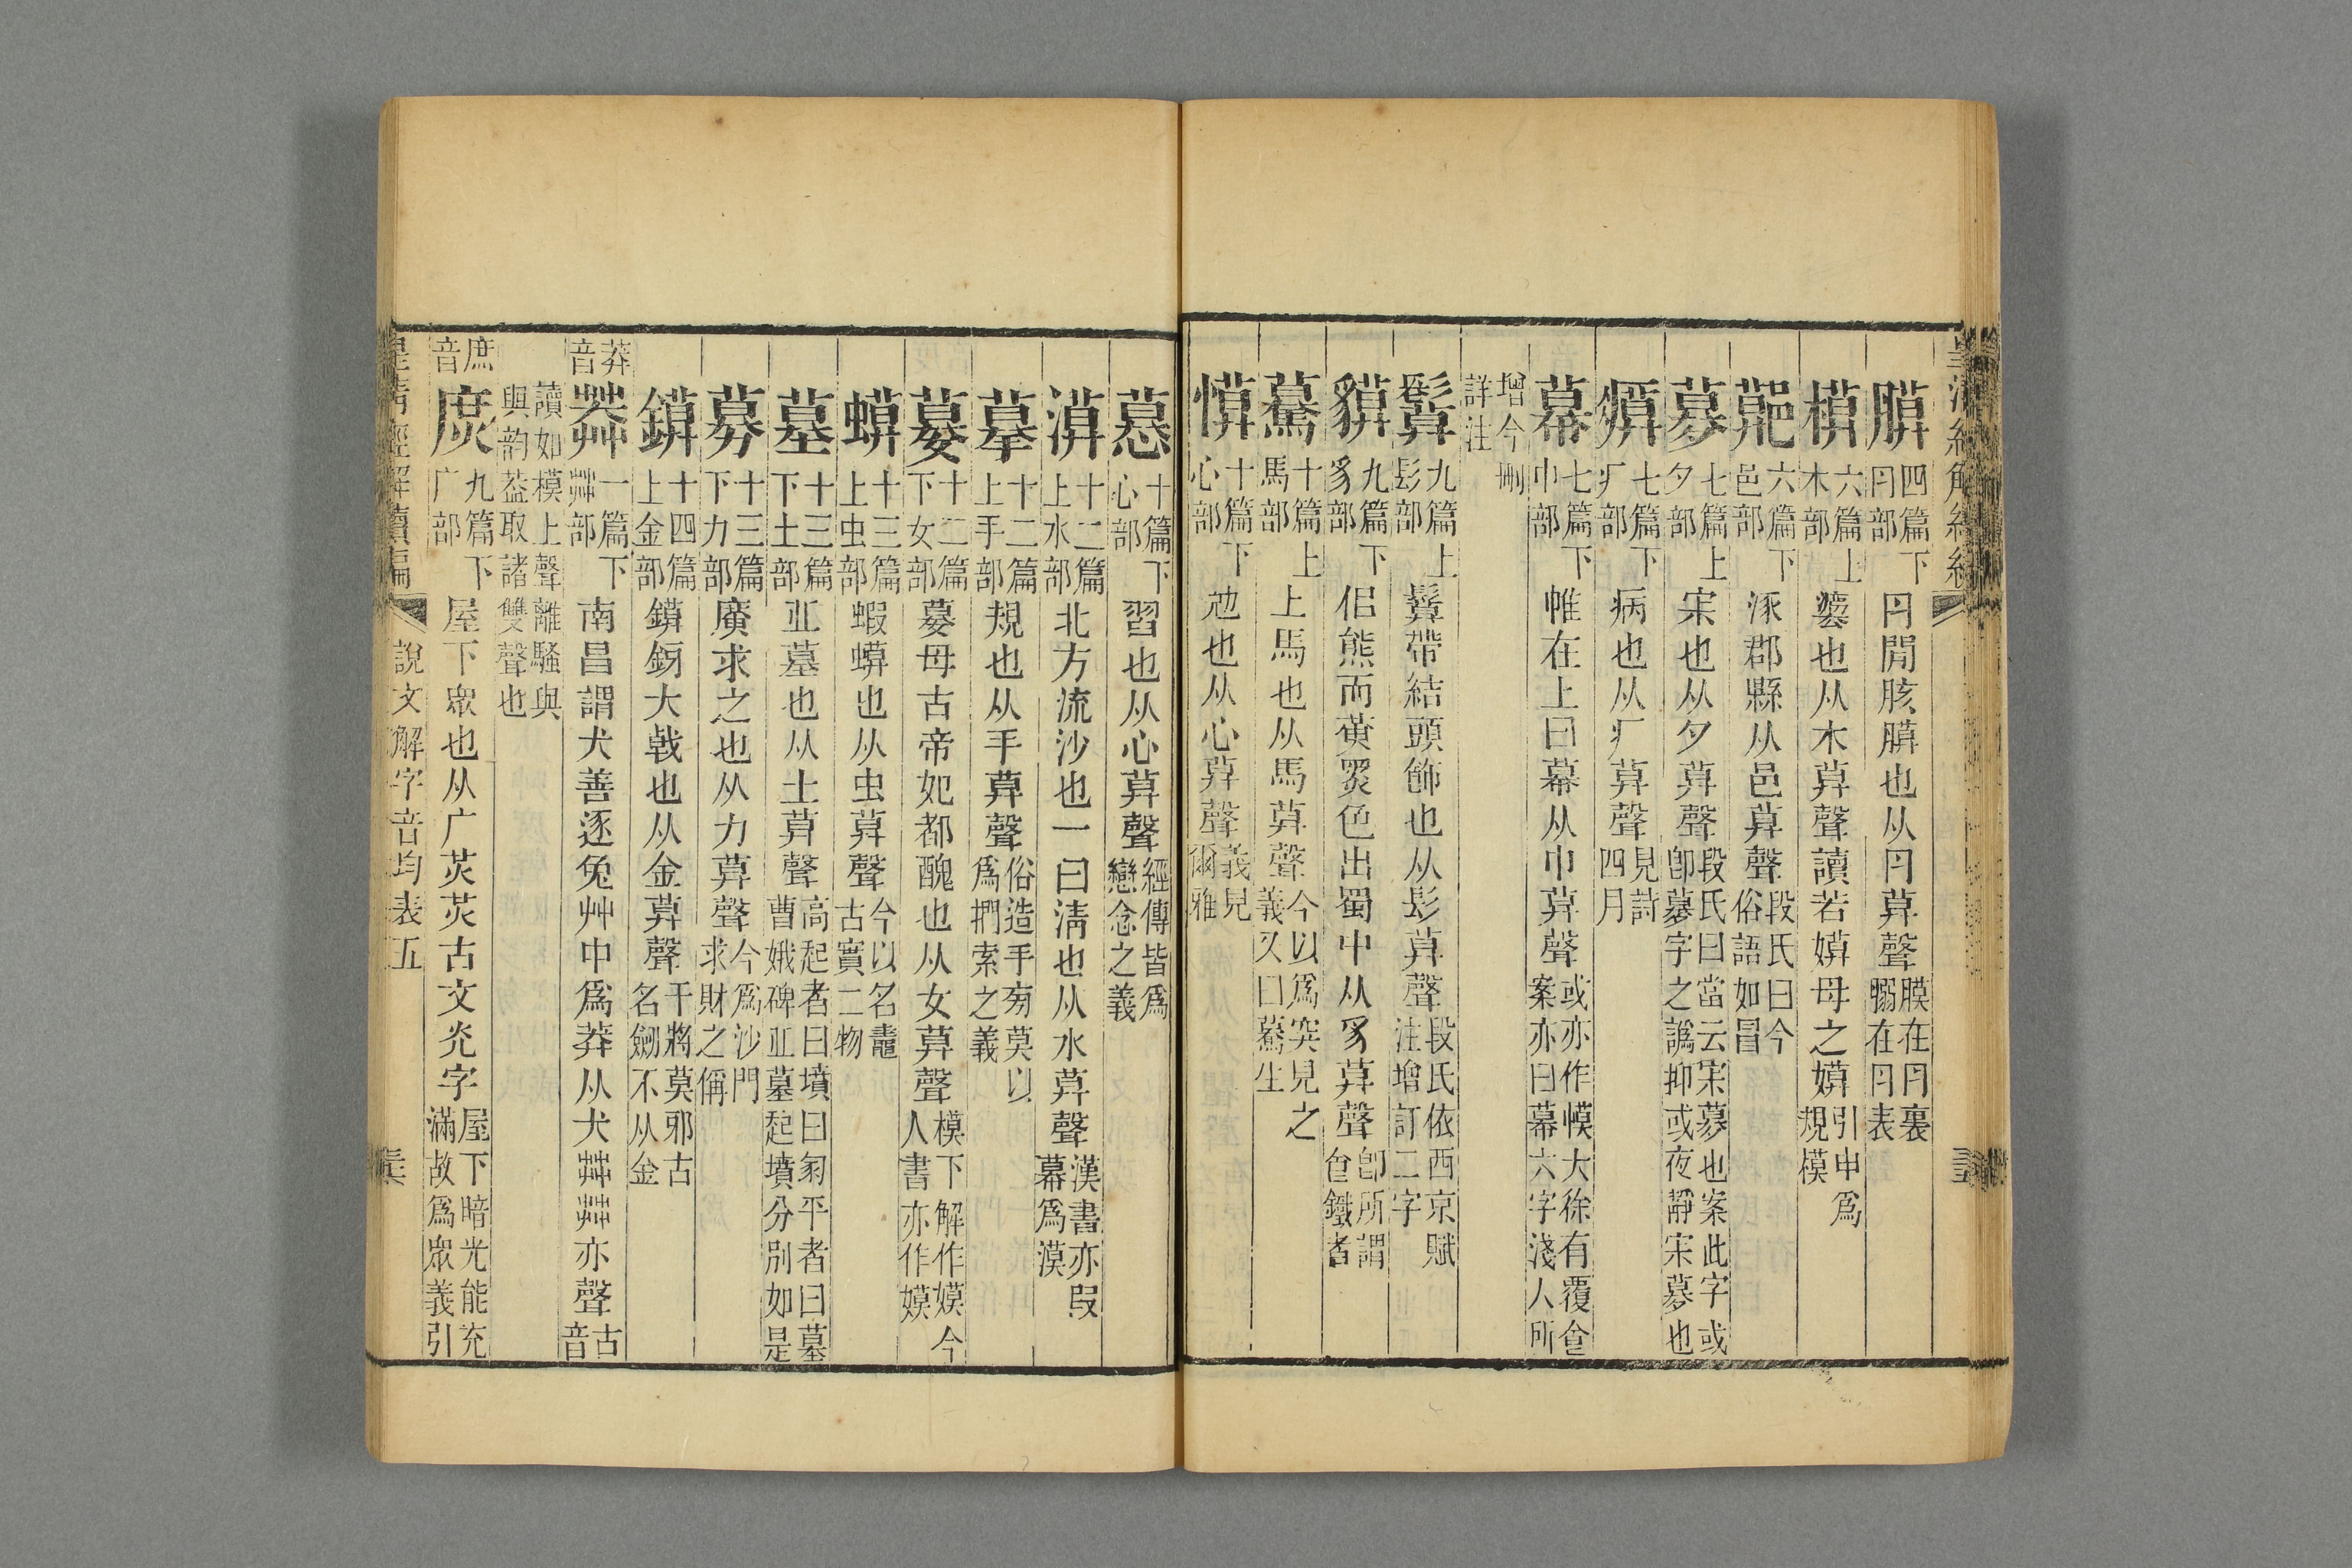 膜四篇下肉部肉閒胲膜也从肉莫聲膜在肉裏䐃在肉表
模六篇上木部㯳也从木莫聲讀若嫫母之嫫引申爲規模
鄚六篇下邑部涿郡縣从邑莫聲段氏曰今俗語如冒
夢七篇上夕部宋也从夕莫聲段氏曰當云宋夢也案此字或卽墓字之譌抑或夜靜宋夢也
瘼七篇下疒部病也从疒莫聲見詩四月
幕七篇下巾部帷在上曰幕从巾莫聲或亦作幙大徐有覆食案亦曰幕六字淺人所
增今刪詳注
髍九篇上髟部鬕帶結頭飾也从髟莫聲段氏依西京賦注增訂二字
貘九篇下豸部佀熊而黃黑色出蜀中从豸莫聲卽所謂食鐵者
驀十篇上馬部上馬也从馬莫聲今以爲突見之義又曰驀生
慔十篇下心部勉也从心莫聲義見爾雅
慕十篇下心部習也从心莫聲經傳皆爲戀念之義
漠十二篇上水部北方流沙也一曰淸也从水莫聲漢書亦叚幕爲漠
摹十二篇上手部規也从手莫聲俗造手旁莫以爲捫索之義
嫫十二篇下女部嫫母古帝妃都醜也从女莫聲模下解作嫫今人書亦作嫫
蟆十三篇上虫部蝦蟆也从虫莫聲今以名鼃古實二物
墓十三篇下土部丠墓也从土莫聲高起者曰墳曰冢平者曰墓曹娥碑丠墓起墳分別如是
募十三篇下力部廣求之也从力莫聲今爲沙門求財之稱
鏌十四篇上金部鏌釾大戟也从金莫聲干將莫邪古名劒不从金
莽音莽一篇下茻部南昌謂犬善逐兔艸中爲莽从犬茻茻亦聲古音
讀如模上聲離騷與與韵葢取諸雙聲也
庶音庶九篇下广部屋下眾也从广炗炗古文光字屋下暗光能充滿故爲眾義引
皇淸經解續編
說文解字音均表五